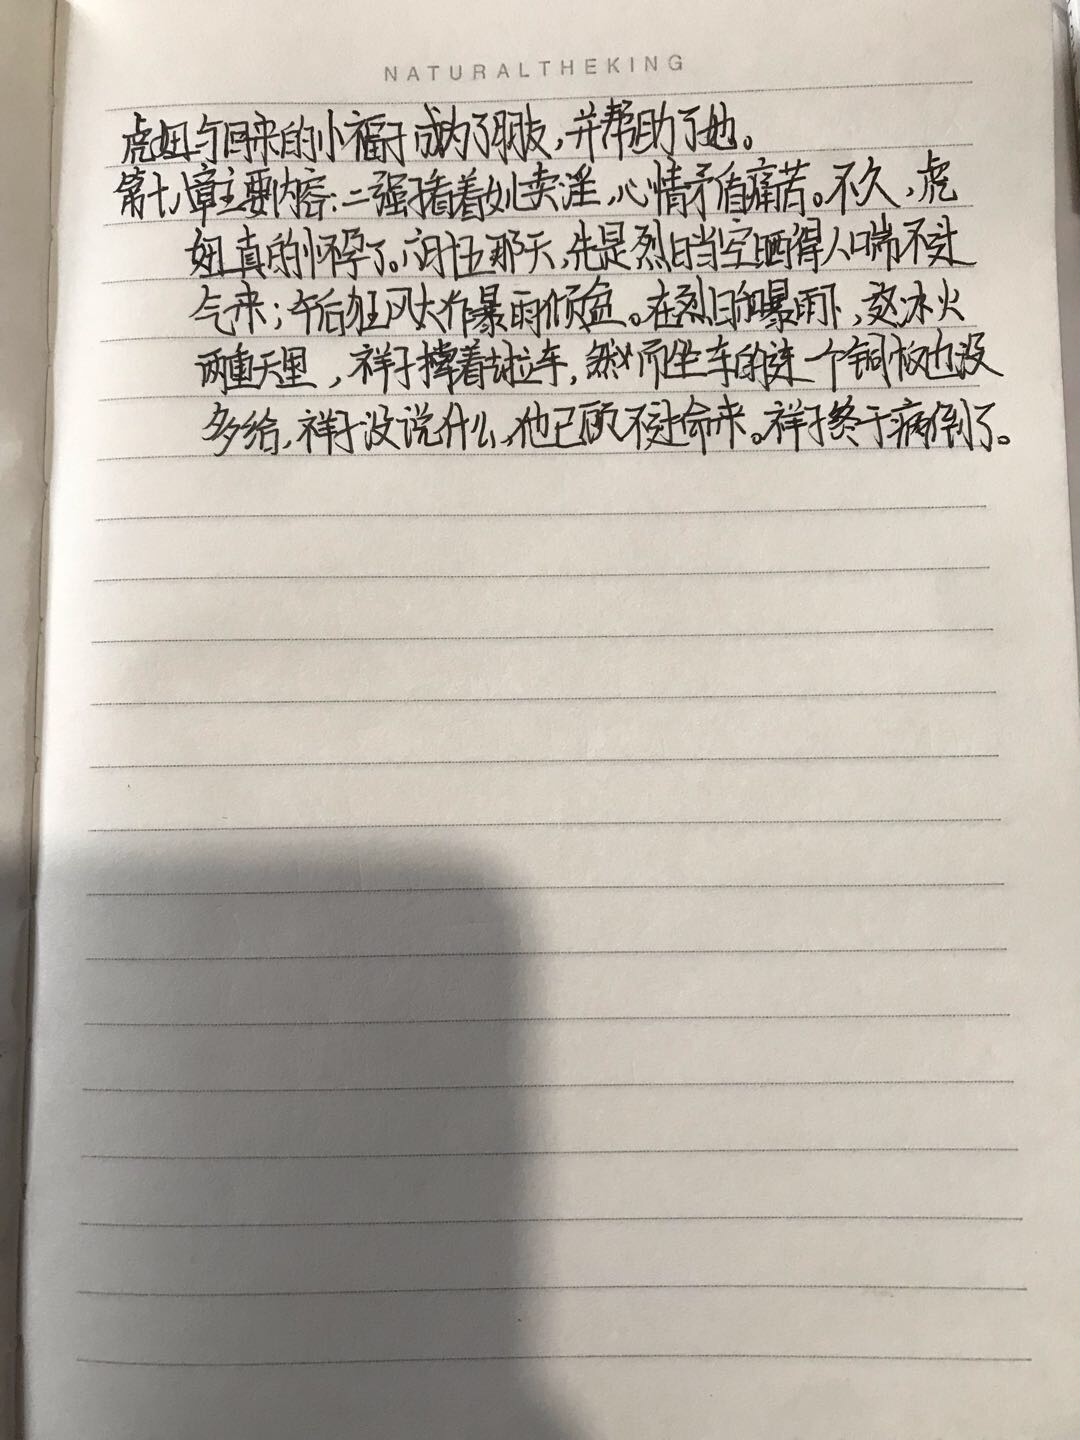 NATURALTHEKING
虎妞与回来的小福子成为了朋友,并帮助了她。
第十八章主要内容:二强子看着女儿卖淫,心情矛盾痛苦。不久,虎
妞真的怀孕了。六月十五那天,先是烈日当空晒得人喘不过
气来;午后狂风大作暴雨倾盆。在烈日和暴雨下,这冰火
两重天里,祥子撑着去拉车,然而坐车的连一个铜板也没
多给,祥子没说什么,他已顾不过命来。祥子终于病倒了。